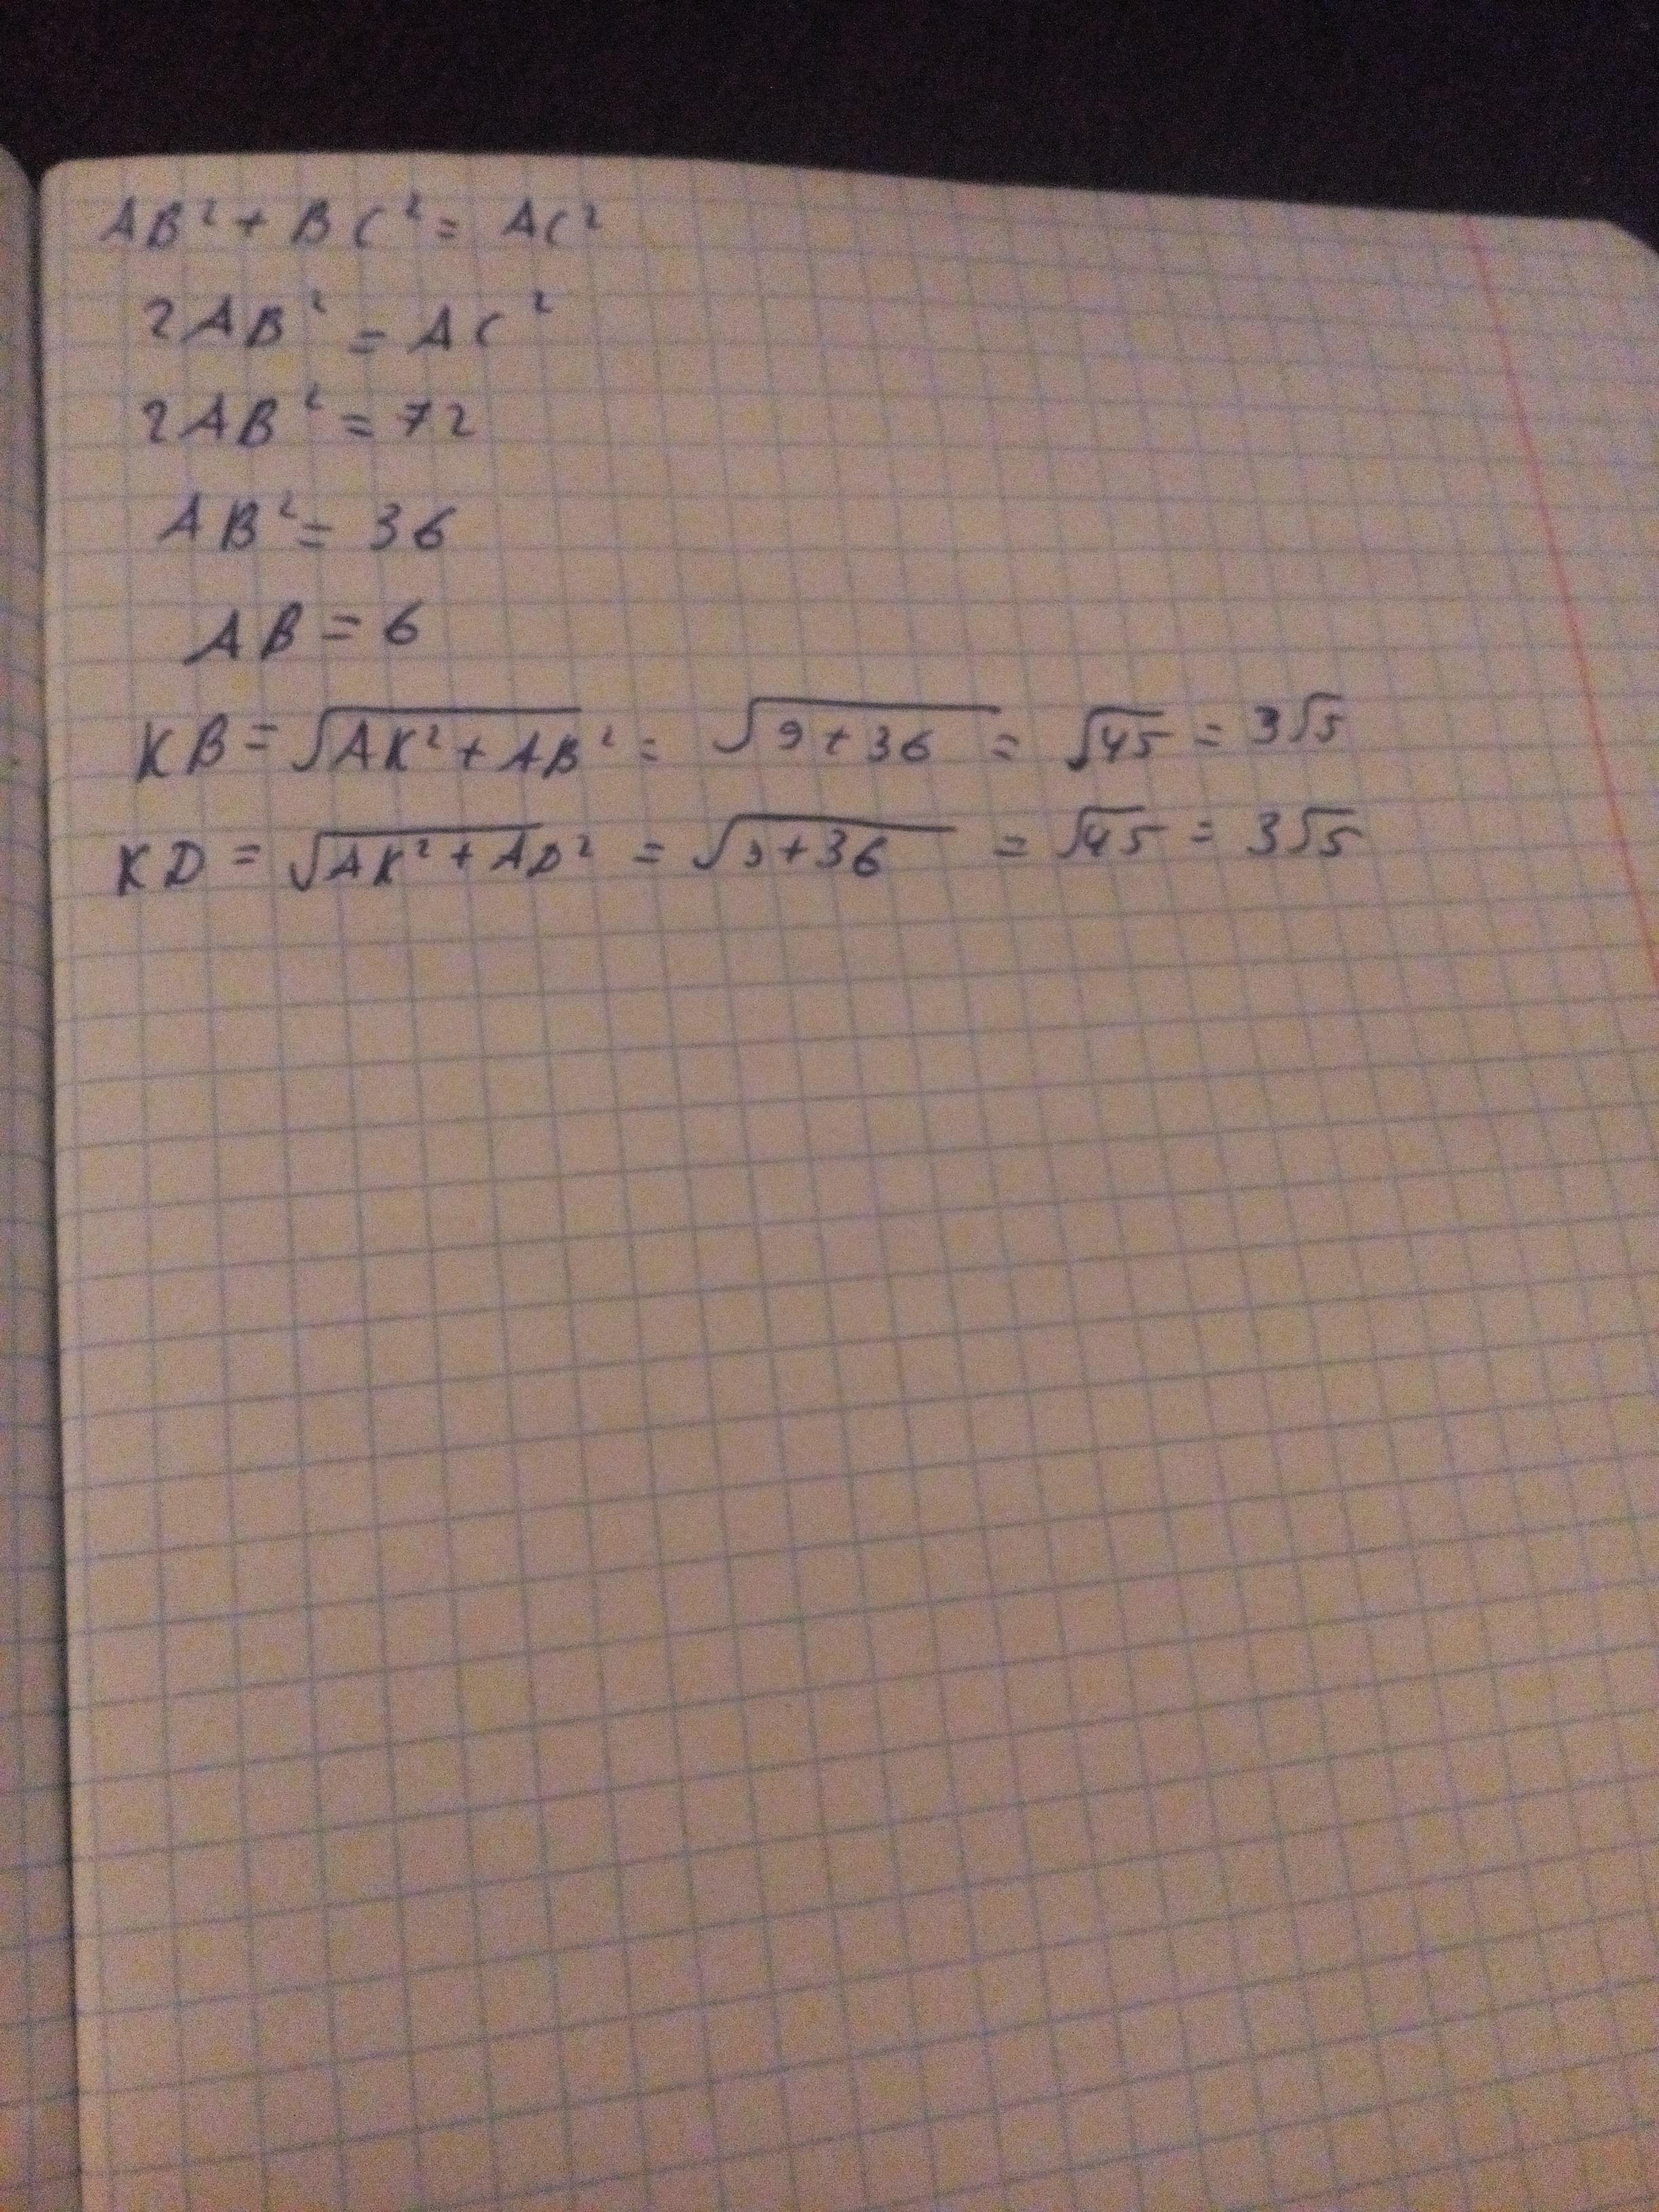 AB² + BC² = AC²
2AB² = AC²
2AB² = 72
AB² = 36
AB = 6
KB = √AK² + AB² = √9 + 36 = √45 = 3√5
KD = √AK² + AD² = √9 + 36 = √45 = 3√5